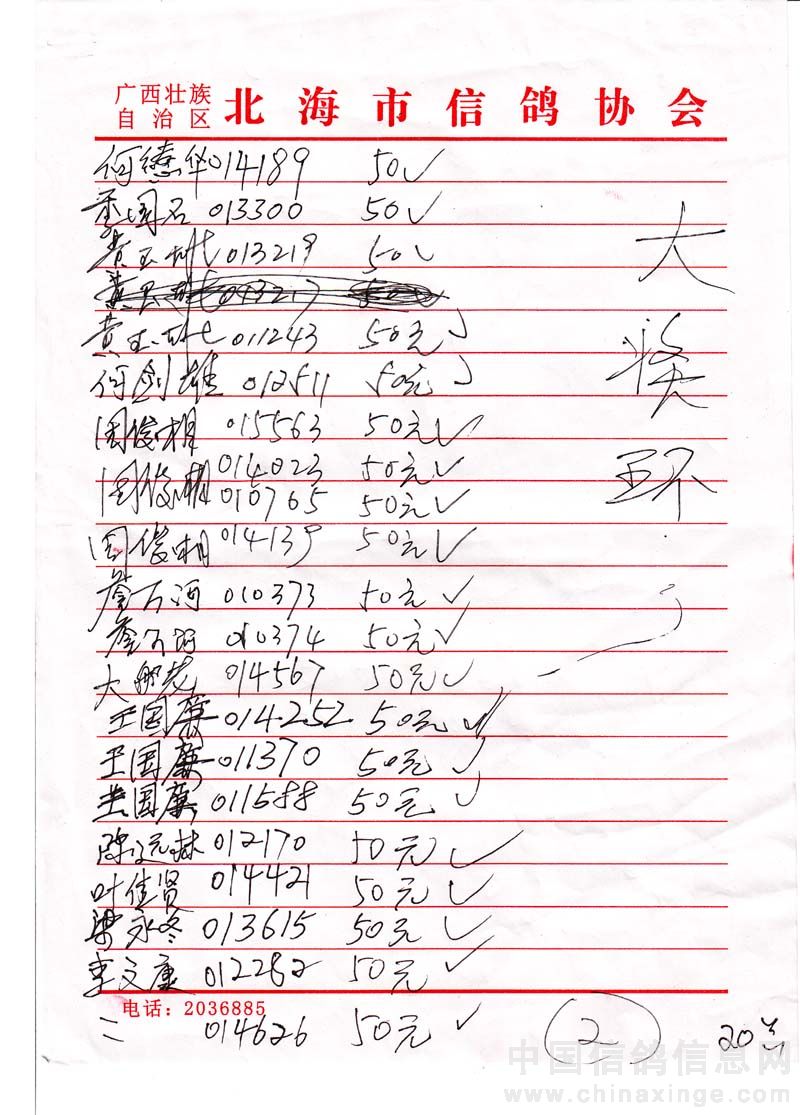 广西壮族
自治区 北海市信鸽协会
何德华 014189 50
李国名 013300 50
黄玉 013219 50
黄玉 013217 50
黄玉 011243 50元
何剑雄 012511 50元
周俊相 015563 50元
周俊相 014023 50元
010765 50元
周俊相 014139 50元
詹万河 010373 50元
詹万河 010374 50元
大 014567 50元
王国廉 014252 50元
王国廉 011370 50元
王国廉 011588 50元
陈远林 012170 50元
叶佳贤 014421 50元
梁永冬 013615 50元
李文康 012282 50元
电话:2036885
014626 50元
大
奖
环
2
20
中国信鸽信息网
www.chinaxinge.com